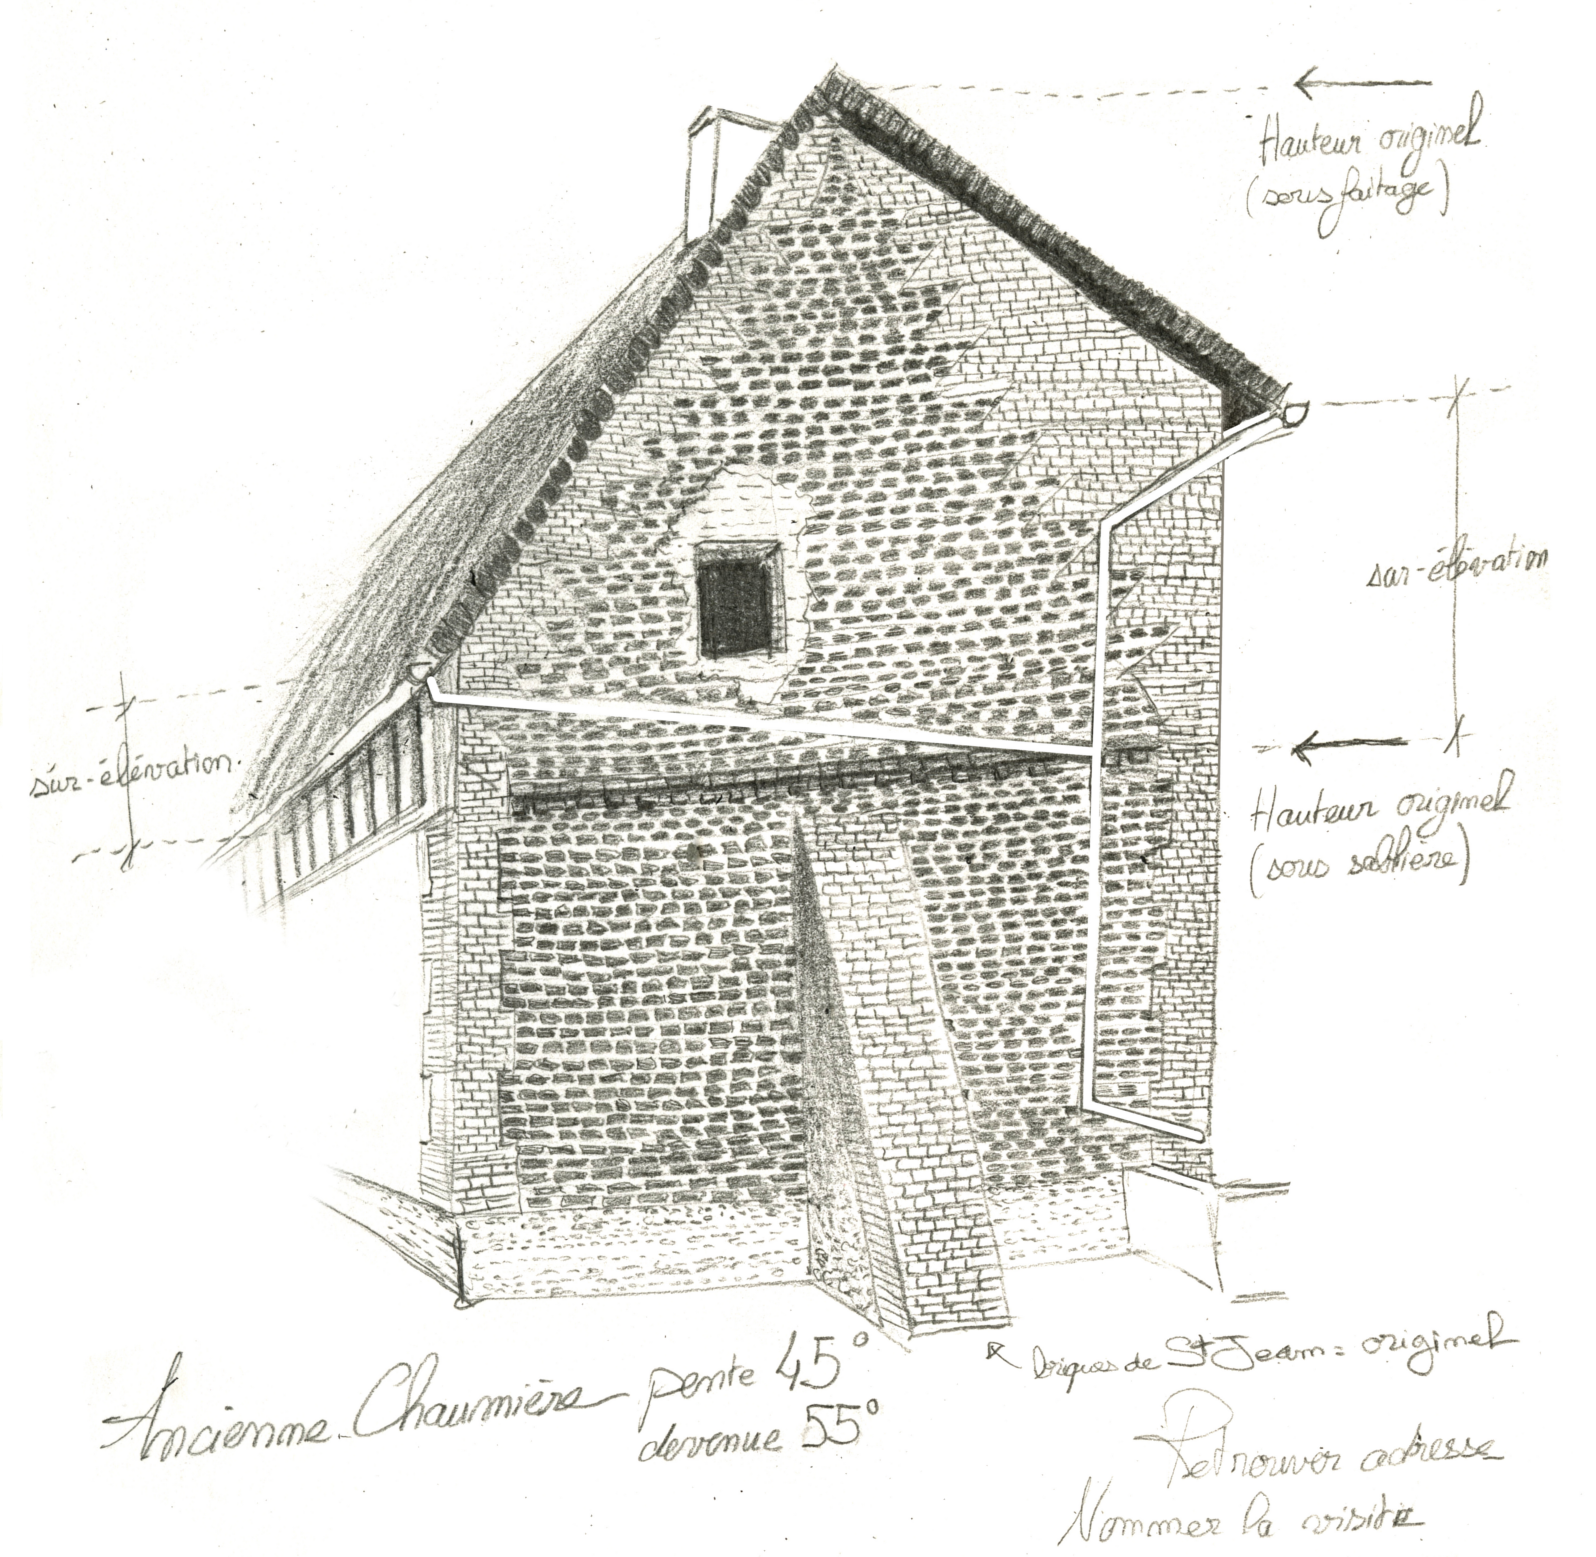 Hauteur originel
(sous faitage)
sur-élévation
sur-élévation.
Hauteur originel
(sous sablière)
briques de St Jean = originel
Ancienne Chaumière pente 45°
devenue 55°
Retrouver adresse
Nommer la visite